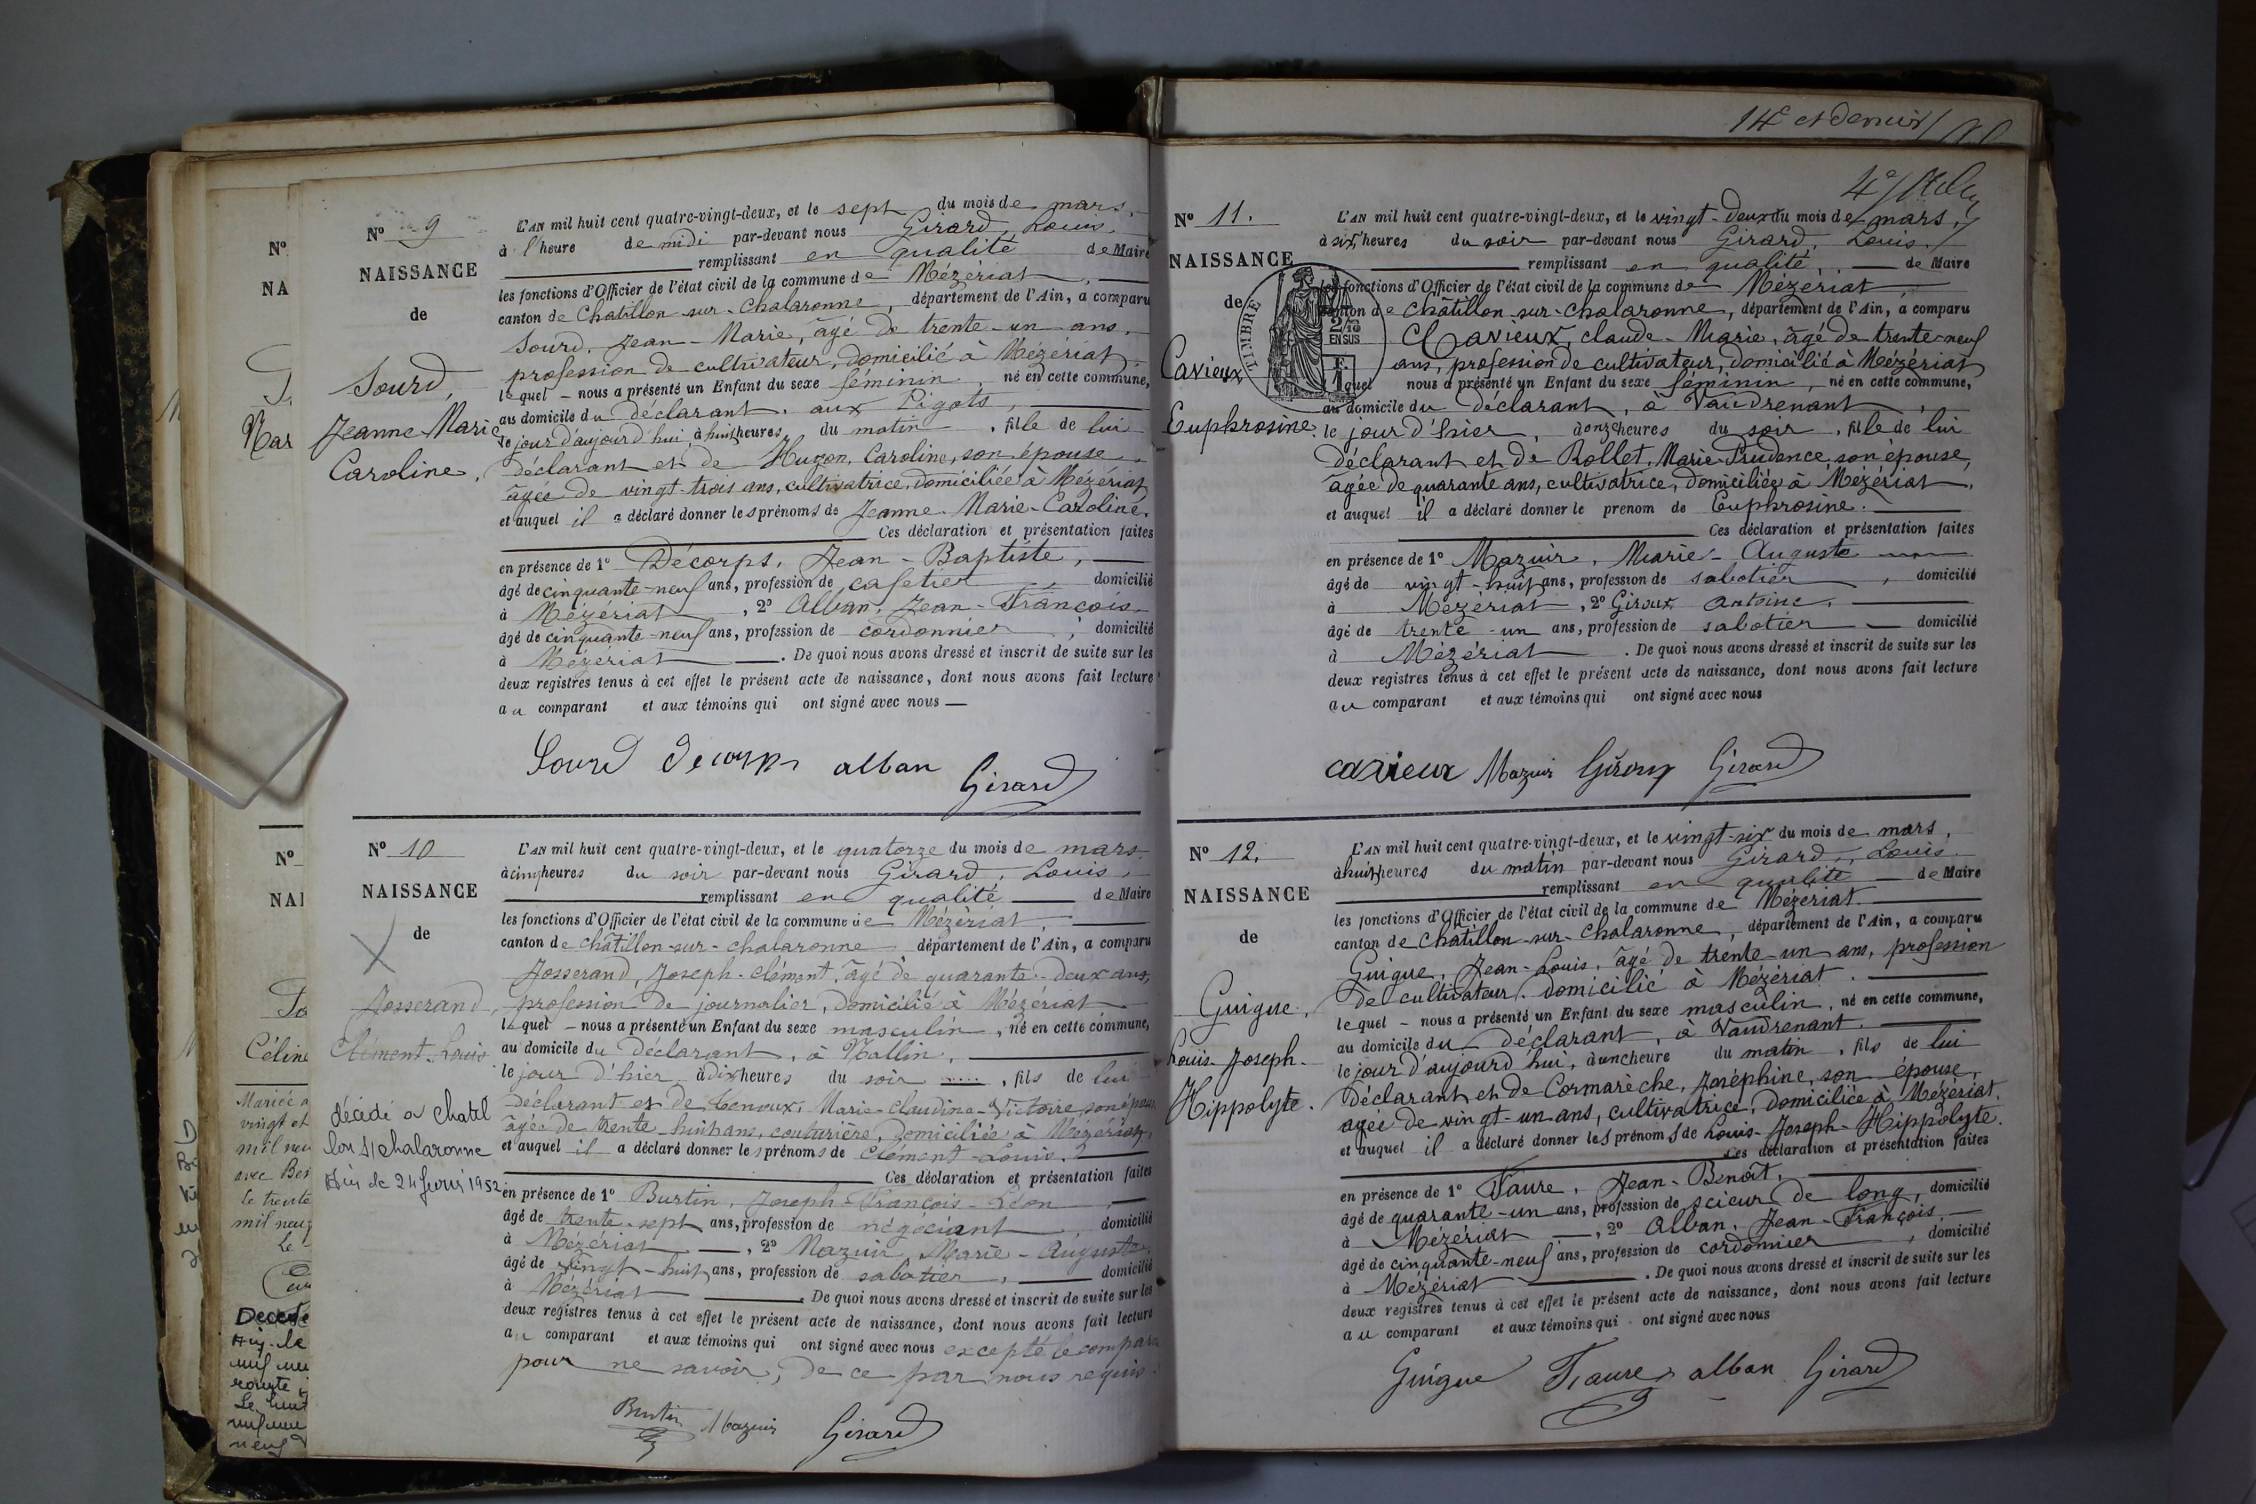 Nº 9
NAISSANCE
de
Sourd,
Jeanne Marie
Caroline.
L'AN mil huit cent quatre-vingt-deux, et le sept du mois de mars,
à l'heure de midi par-devant nous Girard, Louis,
remplissant en qualité de Maire
les fonctions d'Officier de l'état civil de la commune de Mézériat,
canton de Chatillon-sur-Chalaronne, département de l'Ain, a comparu
Sourd, Jean-Marie, âgé de trente-un ans,
profession de cultivateur, domicilié à Mézériat,
lequel - nous a présenté un Enfant du sexe féminin, né en cette commune,
au domicile du déclarant, aux Pigots,
le jour d'aujourd'hui, à huit heures du matin, fille de lui
déclarant et de Hugon, Caroline, son épouse,
âgée de vingt-trois ans, cultivatrice, domiciliée à Mézériat,
et auquel il a déclaré donner les prénoms de Jeanne-Marie-Caroline.
Ces déclaration et présentation faites
en présence de 1º Décorps, Jean-Baptiste,
âgé de cinquante-neuf ans, profession de cafetier, domicilié
à Mézériat, 2º Alban, Jean-François,
âgé de cinquante-neuf ans, profession de cordonnier, domicilié
à Mézériat. De quoi nous avons dressé et inscrit de suite sur les
deux registres tenus à cet effet le présent acte de naissance, dont nous avons fait lecture
au comparant et aux témoins qui ont signé avec nous —
Sourd Decorps alban Girard
Nº 10
NAISSANCE
de
Josserand,
Clément-Louis
décédé a Chatil
lon s/ chalaronne
Ain le 24 février 1952
L'AN mil huit cent quatre-vingt-deux, et le quatorze du mois de mars,
à cinq heures du soir par-devant nous Girard, Louis,
remplissant en qualité de Maire
les fonctions d'Officier de l'état civil de la commune de Mézériat,
canton de châtillon-sur-chalaronne département de l'Ain, a comparu
Josserand, Joseph-Clément, âgé de quarante-deux ans,
profession de journalier, domicilié à Mézériat
lequel - nous a présenté un Enfant du sexe masculin, né en cette commune,
au domicile du déclarant, à Vallin,
le jour d'hier à dix heures du soir, fils de lui
déclarant et de Marie-Claudine-Victoire, son épouse
âgée de trente-huit ans, couturière, domiciliée à Mézériat,
et auquel il a déclaré donner les prénoms de Clément-Louis.
Ces déclaration et présentation faites
en présence de 1º Burtin, Joseph-François-Léon,
âgé de trente-sept ans, profession de négociant, domicilié
à Mézériat, 2º Mazuir, Marie-Auguste,
âgé de vingt-huit ans, profession de sabotier, domicilié
à Mézériat. De quoi nous avons dressé et inscrit de suite sur les
deux registres tenus à cet effet le présent acte de naissance, dont nous avons fait lecture
au comparant et aux témoins qui ont signé avec nous excepté le compara
pour ne savoir, de ce par nous requis.
Burtin Mazuir Girard
14e et dernier
Nº 11.
NAISSANCE
de
Cavieux
Euphrosine.
TIMBRE
2/10
EN SUS
L'AN mil huit cent quatre-vingt-deux, et le vingt-deux du mois de mars,
à six heures du soir par-devant nous Girard, Louis,
remplissant en qualité, de Maire
les fonctions d'Officier de l'état civil de la commune de Mézériat
canton de châtillon-sur-chalaronne, département de l'Ain, a comparu
Cavieux, claude-Marie, âgé de trente-neuf
ans, profession de cultivateur, domicilié à Mézériat
lequel nous a présenté un Enfant du sexe féminin, né en cette commune,
au domicile du déclarant, à Vaudrenant,
le jour d'hier, à onze heures du soir, fille de lui
déclarant et de Rollet, Marie-Prudence, son épouse,
âgée de quarante ans, cultivatrice, domiciliée à Mézériat,
et auquel il a déclaré donner le prenom de Euphrosine.
Ces déclaration et présentation faites
en présence de 1º Mazuir, Marie-Auguste
âgé de vingt-huit ans, profession de sabotier, domicilié
à Mézériat, 2º Giroux Antoine,
âgé de trente-un ans, profession de sabotier domicilié
à Mézériat. De quoi nous avons dressé et inscrit de suite sur les
deux registres tenus à cet effet le présent acte de naissance, dont nous avons fait lecture
au comparant et aux témoins qui ont signé avec nous
cavieux Mazuir Giroux Girard
Nº 12.
NAISSANCE
de
Guigue,
Louis-Joseph-
Hippolyte.
L'AN mil huit cent quatre-vingt-deux, et le vingt-six du mois de mars,
à huit heures du matin par-devant nous Girard, Louis
remplissant en qualité de Maire
les fonctions d'Officier de l'état civil de la commune de Mézériat
canton de châtillon-sur-chalaronne, département de l'Ain, a comparu
Guigue, Jean-Louis, âgé de trente un ans, profession
de cultivateur, domicilié à Mézériat.
lequel - nous a présenté un Enfant du sexe masculin, né en cette commune,
au domicile du déclarant, à Vaudrenant,
le jour d'aujourd'hui, à une heure du matin, fils de lui
déclarant et de Cormarèche, Joséphine, son épouse,
âgée de vingt-un ans, cultivatrice, domiciliée à Mézériat.
et auquel il a déclaré donner les prénoms de Louis-Joseph-Hippolyte.
Ces déclaration et présentation faites
en présence de 1º Faure, Jean-Benoît,
âgé de quarante-un ans, profession de scieur de long, domicilié
à Mézériat, 2º Alban, Jean-François
âgé de cinquante-neuf ans, profession de cordonnier, domicilié
à Mézériat. De quoi nous avons dressé et inscrit de suite sur les
deux registres tenus à cet effet le présent acte de naissance, dont nous avons fait lecture
au comparant et aux témoins qui ont signé avec nous
Guigue Faure alban Girard